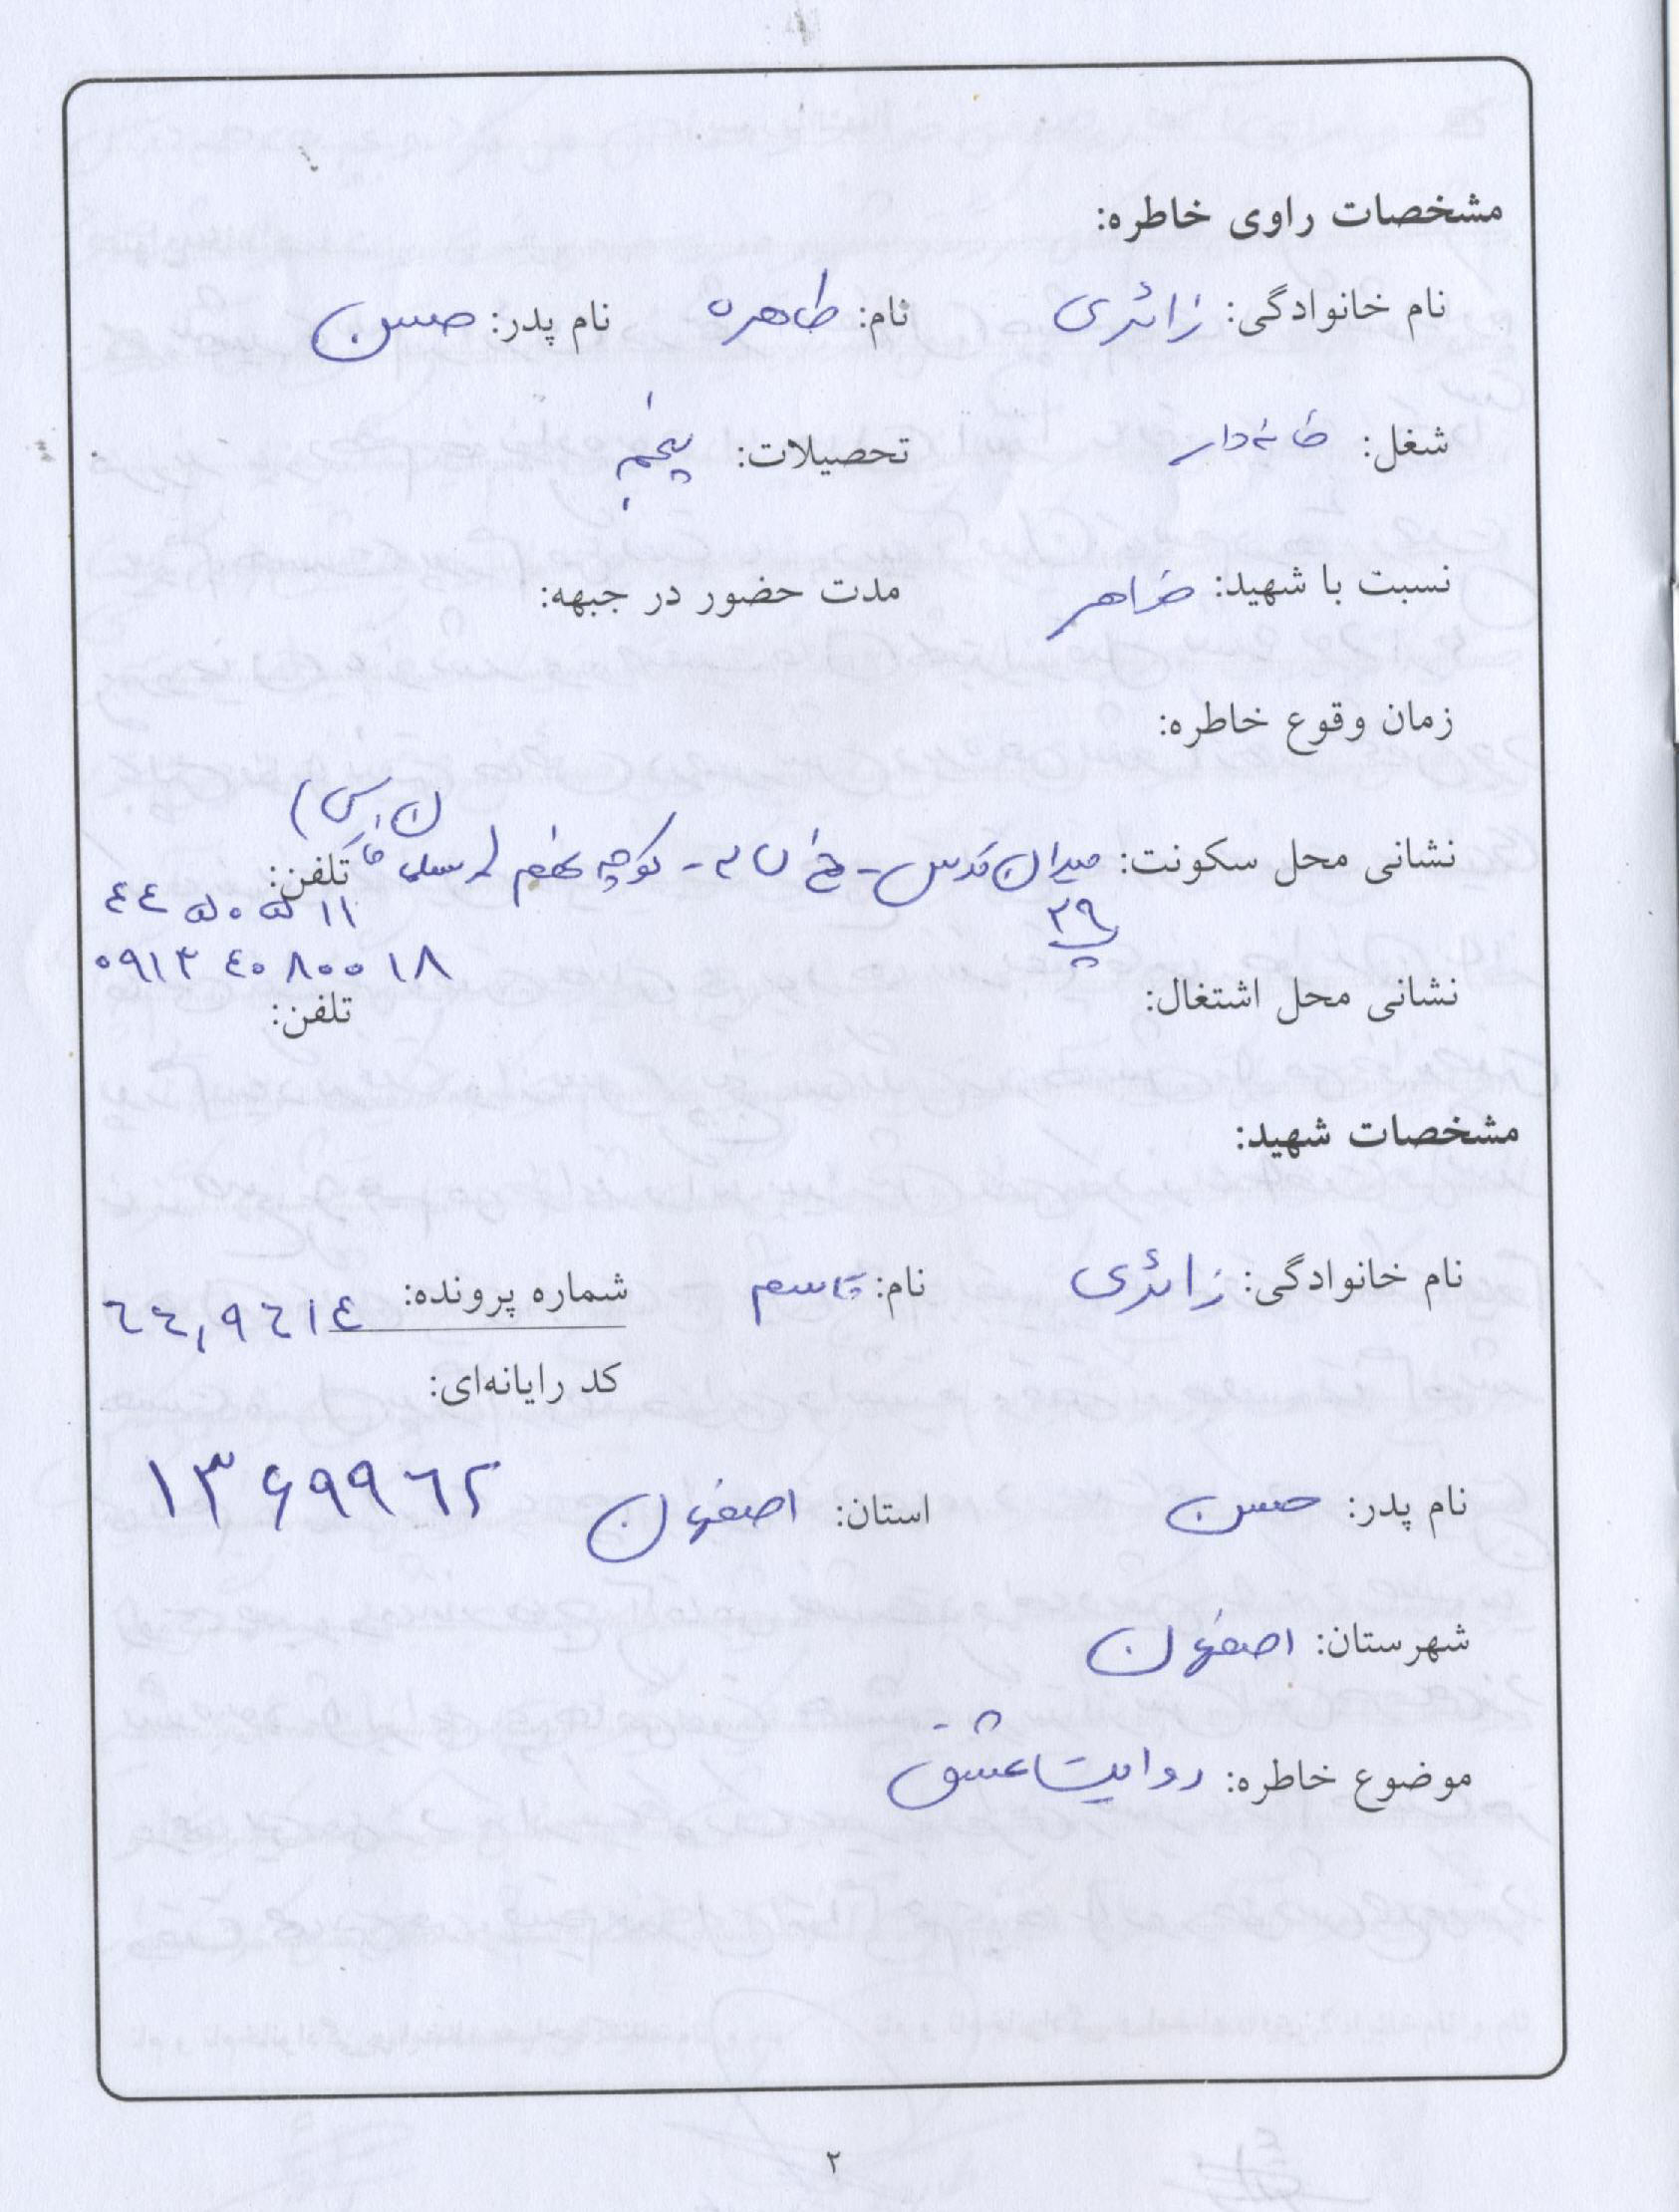 مشخصات راوی خاطره:
نام خانوادگی: زائری نام: طاهره نام پدر: حسن
شغل: خانه‌دار تحصیلات: پنجم
نسبت با شهید: خواهر مدت حضور در جبهه:
زمان وقوع خاطره:
نشانی محل سکونت: میدان قدس - خ لاله - کوچه تلفن:
پ ۲۹ ٤٤ ۵۰۵۱۱
۰۹۱۳ ٤۰۸۰۰۱۸
نشانی محل اشتغال: تلفن:
مشخصات شهید:
نام خانوادگی: زائری نام: قاسم شماره پرونده:
کد رایانه‌ای:
نام پدر: حسن استان: اصفهان ۱۳۶۹۹٦۲
شهرستان: اصفهان
موضوع خاطره: روایت عشق
۲